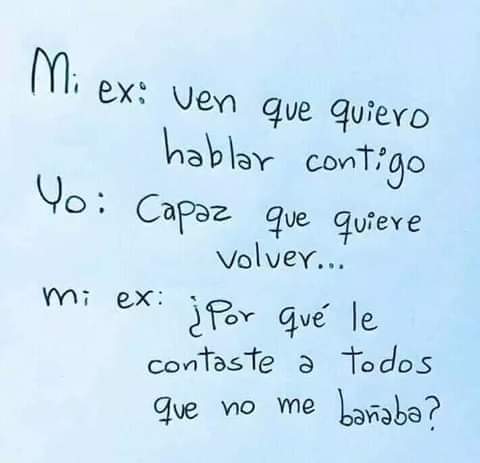 Mi ex: ven que quiero
hablar contigo
Yo: Capaz que quiere
volver...
mi ex: ¿Por qué le
contaste a todos
que no me bañaba?